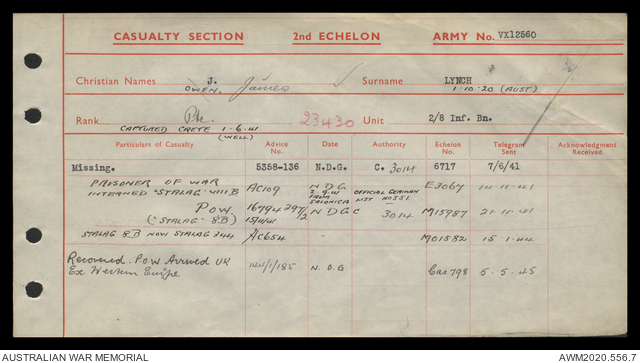 CASUALTY SECTION 2nd ECHELON ARMY No. VX12560
Christian Names J. Surname LYNCH
OWEN, James 1-10-20 (AUST)
Rank Pte. 23430 Unit 2/8 Inf. Bn.
CAPTURED CRETE 1-6-41
(WELL)
Particulars of Casualty Advice No. Date Authority Echelon No. Telegram Sent Acknowledgment Received
Missing. 5358-136 N.D.G. C. 3014 6717 7/6/41
PRISONER OF WAR
INTERNED "STALAG" VIII.B AC109 N D G OFFICIAL GERMAN LIST E3067 14-11-41
SALONICA
POW 16794 N D G C 3014 M15987 21-11-41
("STALAG" 8B)
STALAG 8B NOW STALAG 344 AC654 - M01582 15.1.44
Recovered P.O.W Arrived UK
Ex Western Europe 144/1/185 N.D.G Cas 798 5.5.45
AUSTRALIAN WAR MEMORIAL AWM2020.556.7